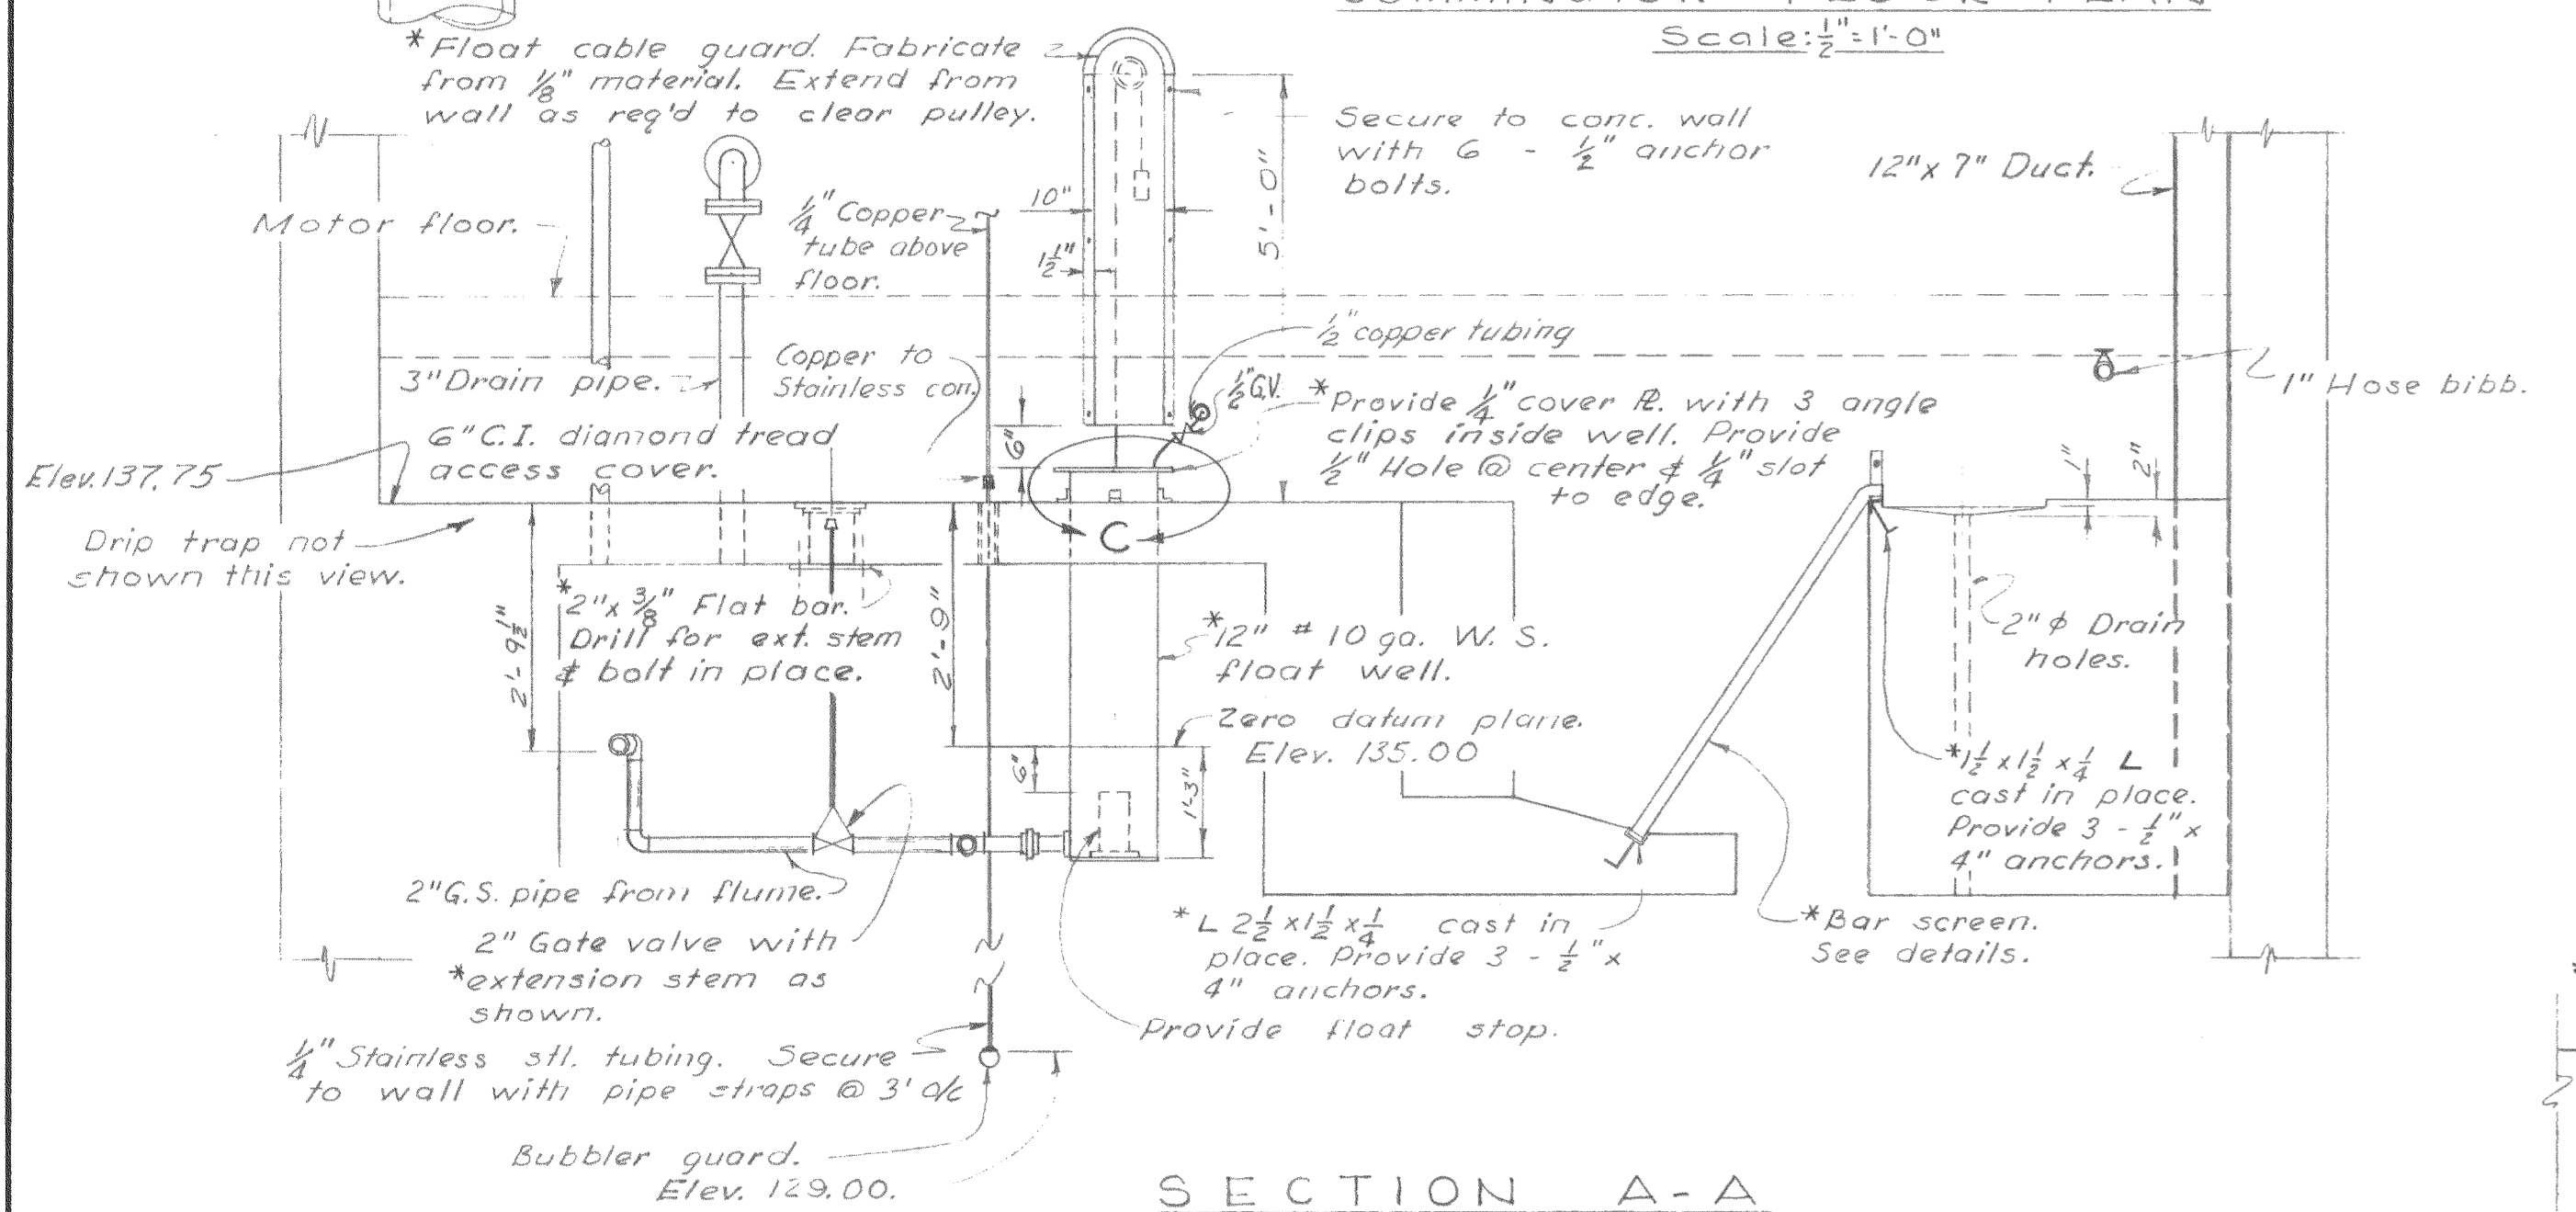 Scale: 1/2" = 1'-0"
*Float cable guard. Fabricate
from 1/8" material. Extend from
wall as req'd to clear pulley.
Secure to conc. wall
with 6 - 1/2" anchor
bolts.
12" x 7" Duct.
Motor floor.
1/4" Copper
tube above
floor.
10"
1 1/2"
5'-0"
1/2" copper tubing
3" Drain pipe.
Copper to
Stainless con.
1/2" G.V.
1" Hose bibb.
6" C.I. diamond tread
access cover.
6"
*Provide 1/4" cover PL. with 3 angle
clips inside well. Provide
1/2" Hole @ center & 1/4" slot
to edge.
1"
2"
Elev. 137.75
Drip trap not
shown this view.
C
*2" x 3/8" Flat bar.
Drill for ext. stem
& bolt in place.
2'-9 1/2"
2'-9"
*12" # 10 ga. W. S.
float well.
2" ϕ Drain
holes.
Zero datum plane.
Elev. 135.00
6"
1'-3"
*1 1/2 x 1 1/2 x 1/4 L
cast in place.
Provide 3 - 1/2" x
4" anchors.
2" G.S. pipe from flume.
2" Gate valve with
*extension stem as
shown.
*L 2 1/2 x 1 1/2 x 1/4 cast in
place. Provide 3 - 1/2" x
4" anchors.
*Bar screen.
See details.
Provide float stop.
1/4" Stainless stl. tubing. Secure
to wall with pipe straps @ 3' o/c
Bubbler guard.
Elev. 129.00.
SECTION A-A